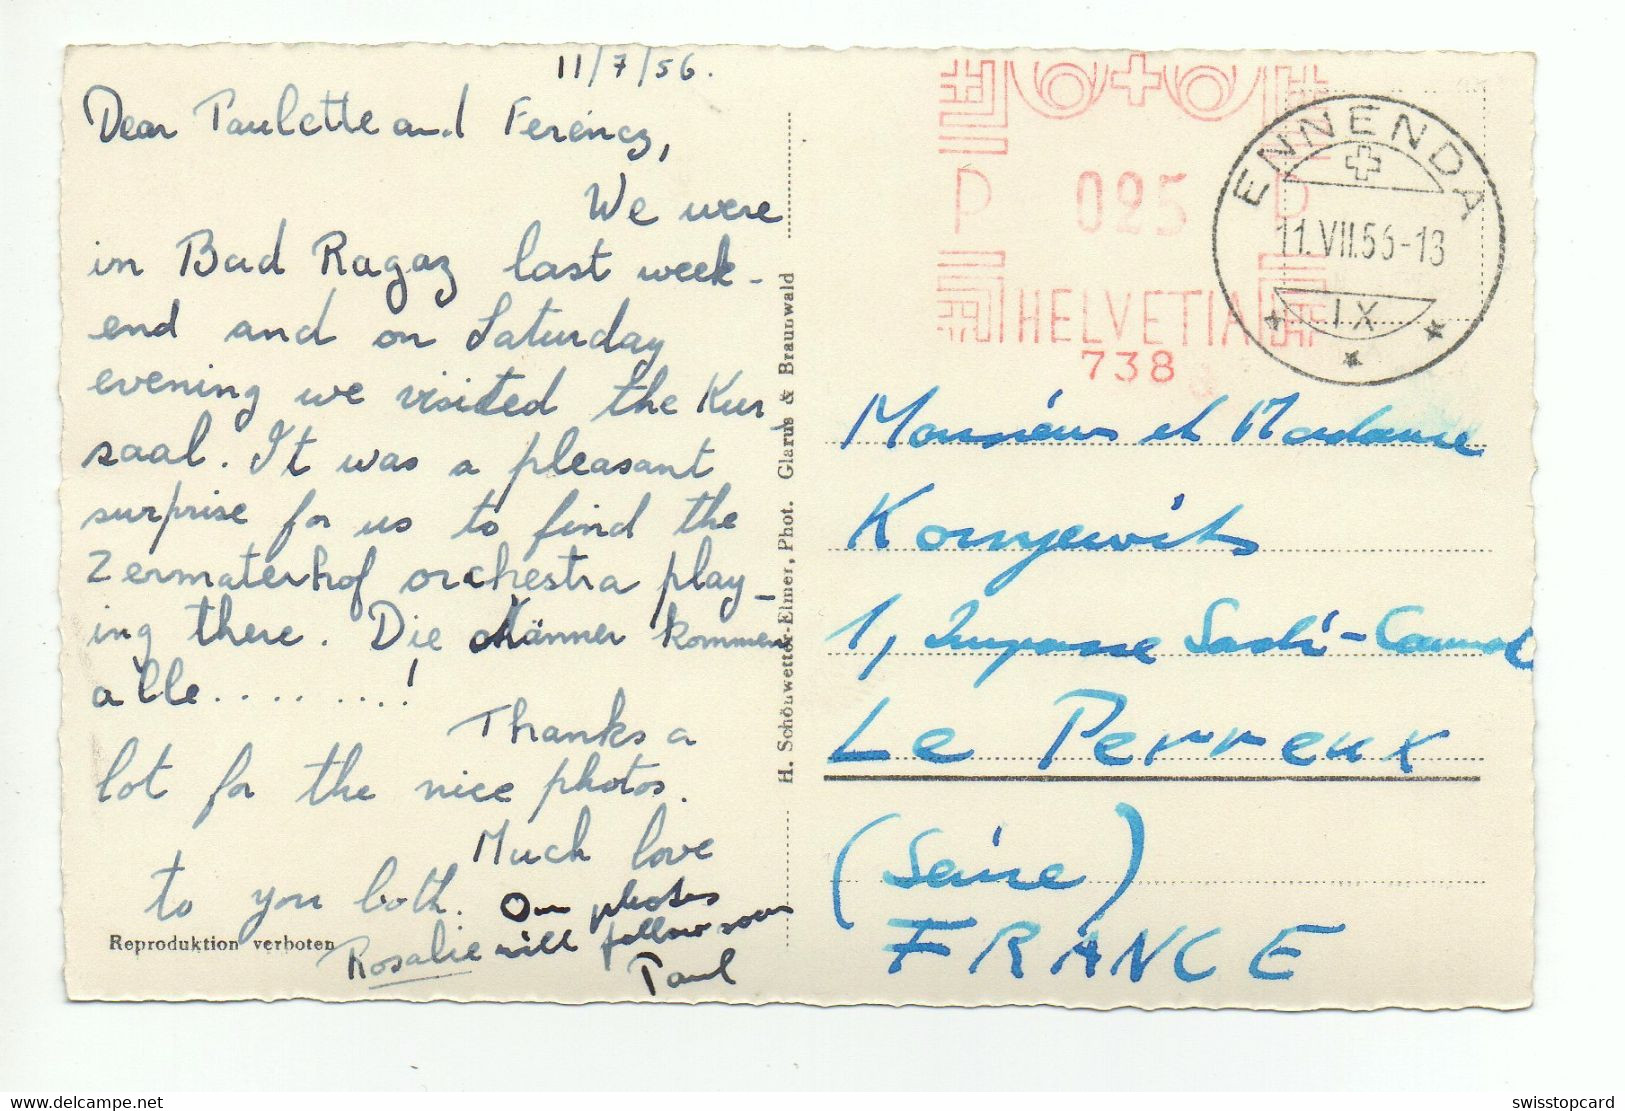 11/7/56.
Dear Paulette and Ferencz,
We were
in Bad Ragaz last week-
end and on Saturday
evening we visited the Kur
saal. It was a pleasant
surprise for us to find the
Zermaterhof orchestra play-
ing there. Die Männer kommen
alle........!
Thanks a
lot for the nice photos.
Much love
to you both.
Rosalie
Our photos
will follow soon
Paul
Reproduktion verboten
H. Schönwetter-Elmer, Phot. Glarus & Braunwald
P 025 P
HELVETIA
738
ENNENDA
11.VII.56-13
IX
Monsieur et Madame
Kornyevits
1, Impasse Sadi-Carnot
Le Perreux
(Seine)
FRANCE
www.delcampe.net
swisstopcard